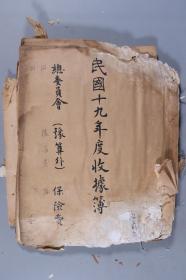 民國十九年度收據簿
總委員會 (預算外) 保險費